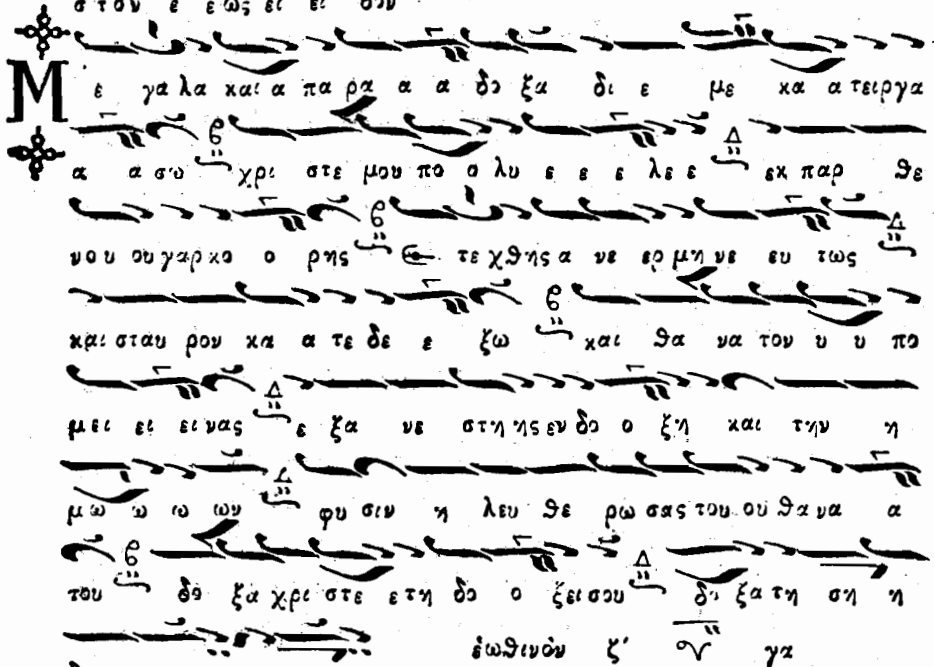 σ τον ε ε ως ει ει σον
Μ ε γα λα και α πα ρα α α δο ξα δι ε με κα α τειργα
α α σω χρι στε μου πο ο λυ ε ε ε λε ε εκ παρ θε
νου ου γαρ κο ο ρης ε τε χθης α νε ερ μη νε ευ τως
και σταυ ρον κα α τε δε ε ξω και θα να τον υ υ πο
μει ει ει ει νας ε ξα νε στη ης εν δο ο ξη και την η
μω ω ω ων φυ σιν η λευ θε ρω σας του ου θα να α
του δο ξα χρι στε ε τη δο ο ξει σου δο ξα τη ση η
ἑωθινὸν ζ΄ γα